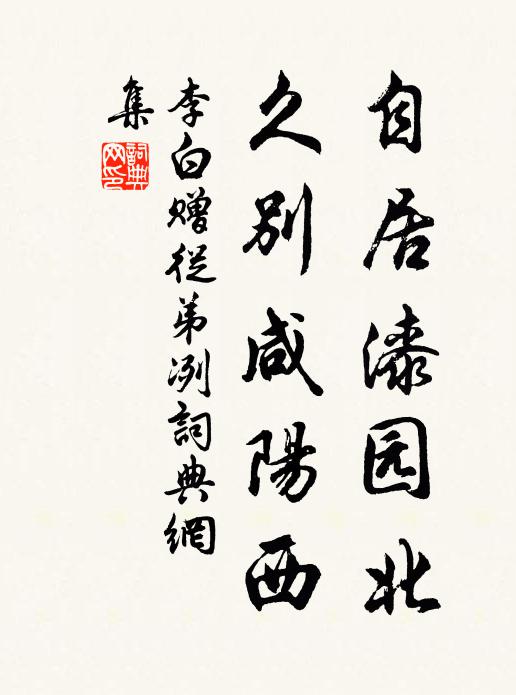 自居漆园北
久别咸陽西
李白贈從弟冽詞典網
集
詞典网印